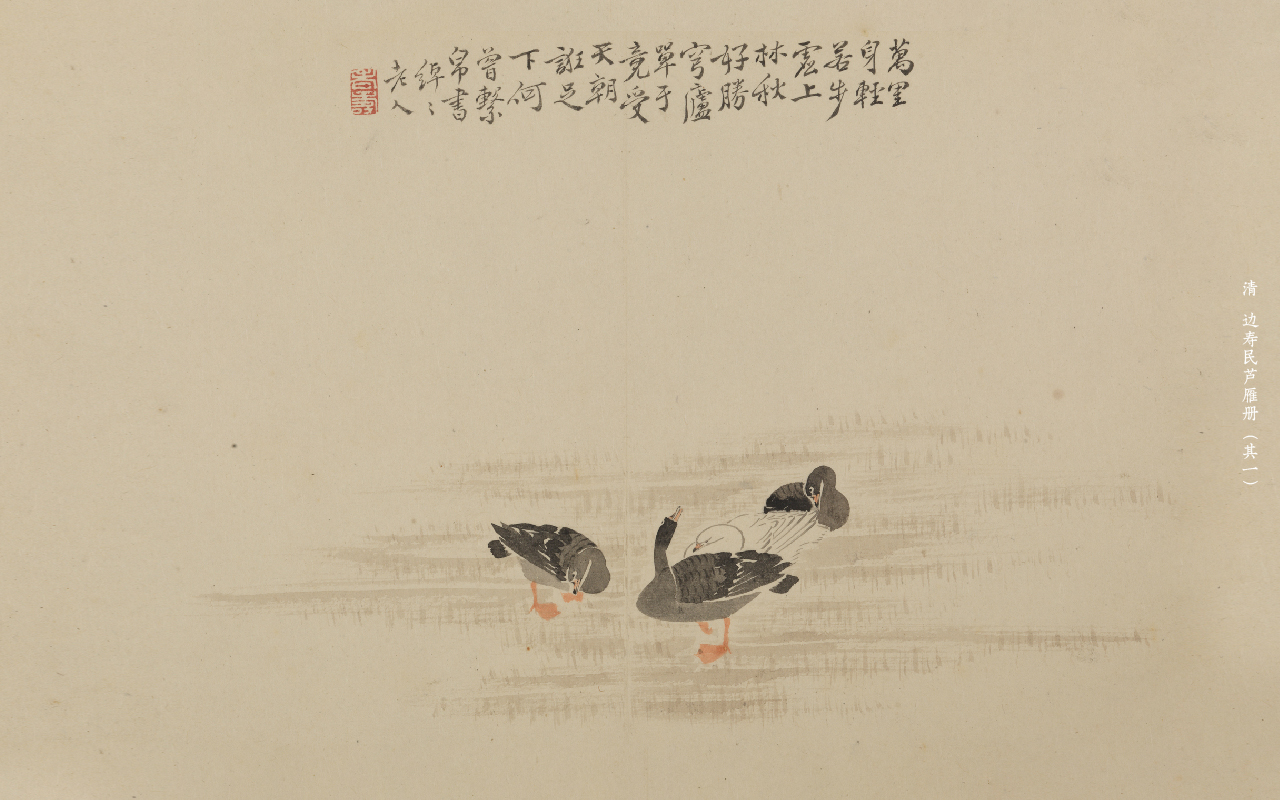 萬里
身輕
若步
虛上
林秋
好勝
穹廬
單于
竟受
天朝
誑足
下何
曾繫
帛書
綽〻
老人
壽
清 边寿民芦雁册（其一）